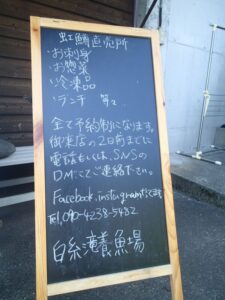 虹鱒直売所
・お刺身
・お惣菜
・冷凍品
・ランチ 等々
全て予約制になります。
御来店の2日前までに
電話もしくは、SNSの
DMにてご連絡下さい。
Facebook, instagramできます
Tel, 090-4238-5482
白糸滝養魚場